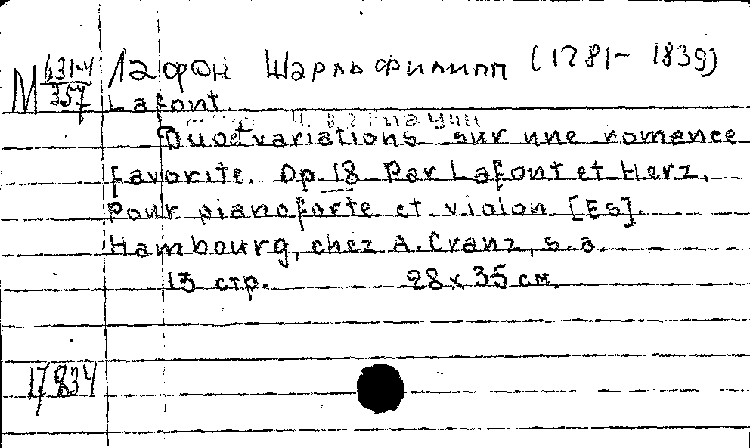 М 631-4/357
Лафон Шарль Филипп (1781-1839)
Lafont.
Duoetvariations sur une romence
favorite. Op. 18 Par Lafont et Herz.
pour pianoforte et violon [Es].
Hambourg, chez A. Cranz, s.a.
15 стр. 28 х 35 см.
17834